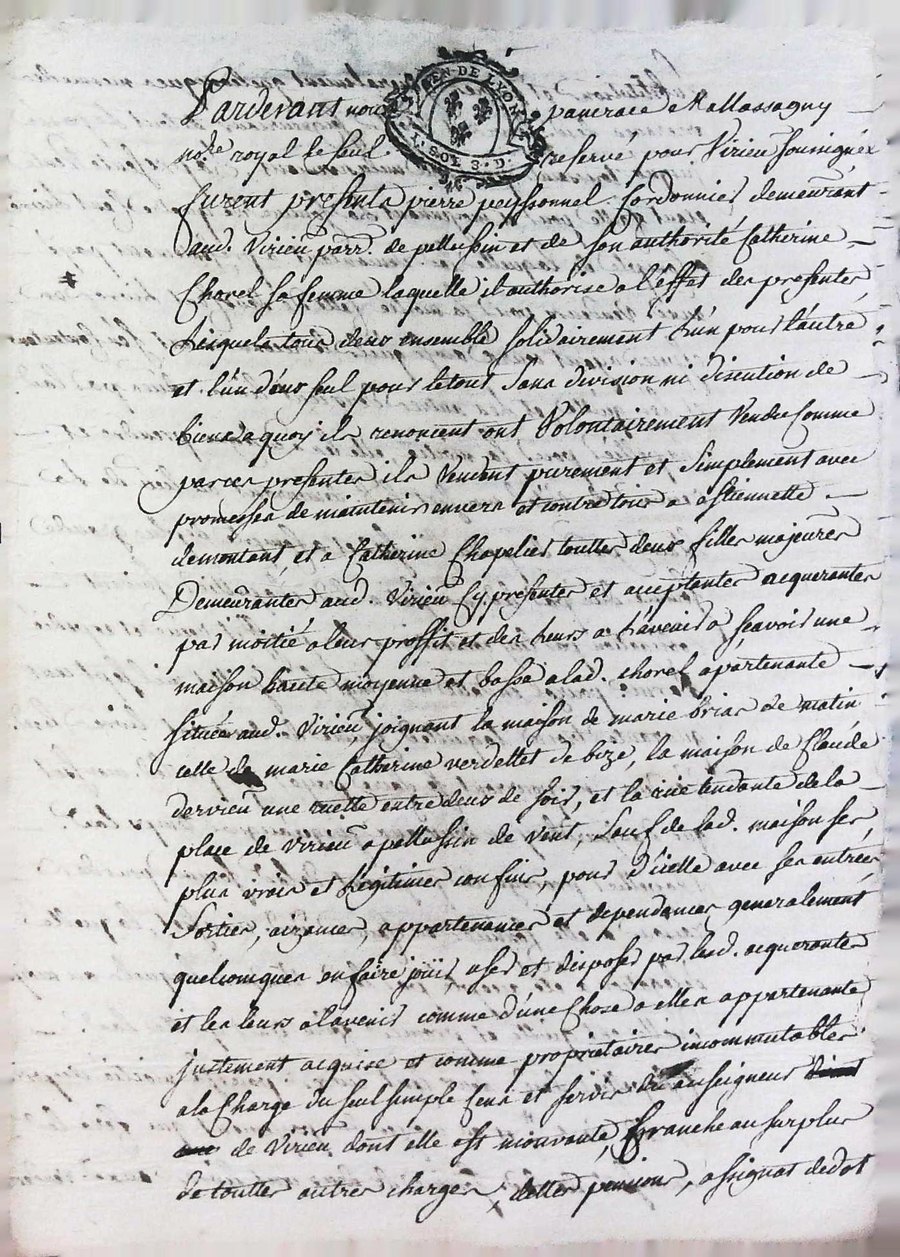 GEN. DE LYON
SOL. 8. D.
Pardevant nou pancrace Mallassagny
no.re royal le seul reservé pour Virieu soussigné
furent presents pierre peyssonnel Cordonnier demeurant
aud. Virieu parr. de pellussin et de son authorité Catherine
Chorel sa femme laquelle il authorise a l'effet des presentes
Lesquels tous deux ensemble solidairement L'un pour l'autre
et l'un d'eux seul pour le tout sans division ni discution de
biens a quoy ils renoncent ont Volontairement Vendu Comme
par ces presentes ils Vendent purement et simplement avec
promesses de maintenir envers et contre tous a estiennette
demontant, et a Catherine Chapelier toutes deux filles majeures
Demeurantes aud. Virieu Cy presentes et acceptantes acquerantes
par moitié a leur proffit et des leurs a L'avenir a sçavoir une
maison haute moyenne et basse a lad. chorel apartenante
située aud. Virieu joignant la maison de marie brias de matin
celle de marie Catherine verdellet de bize, la maison de Claude
dervieu une ruelle entre deux de soir, et la rue tendante de la
place de Virieu a pellussin de vent, sauf de lad. maison ses
plus vrais et Legitimes confins, pour d'icelle avec ses entrées
sorties, aizances, appartenances et dependances generalement
quelconques en faire jouir, user et disposer par lesd. acquerantes
et les leurs a l'avenir comme d'une Chose a elles appartenante
justement acquise et comme proprietaires incommutables
a la Charge du seul simple Cens et servis du au seigneur
de Virieu dont elle est mouvante, franche au surplus
de touttes autres charges, dettes pensions, assignat de dot